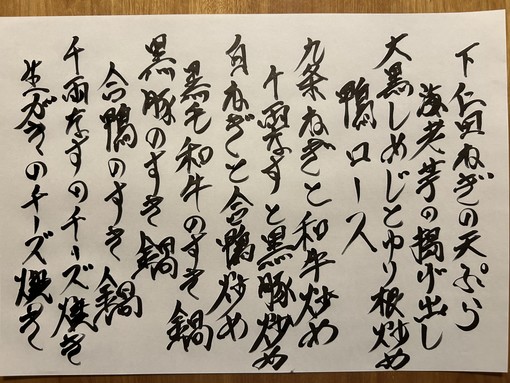 下仁田ねぎの天ぷら
海老芋の揚げ出し
大黒しめじとゆり根炒め
鴨ロース
九条ねぎと和牛炒め
千両なすと黒豚炒め
白ねぎと合鴨炒め
黒毛和牛のすき鍋
黒豚のすき鍋
合鴨のすき鍋
千両なすのチーズ焼き
生がきのチーズ焼き